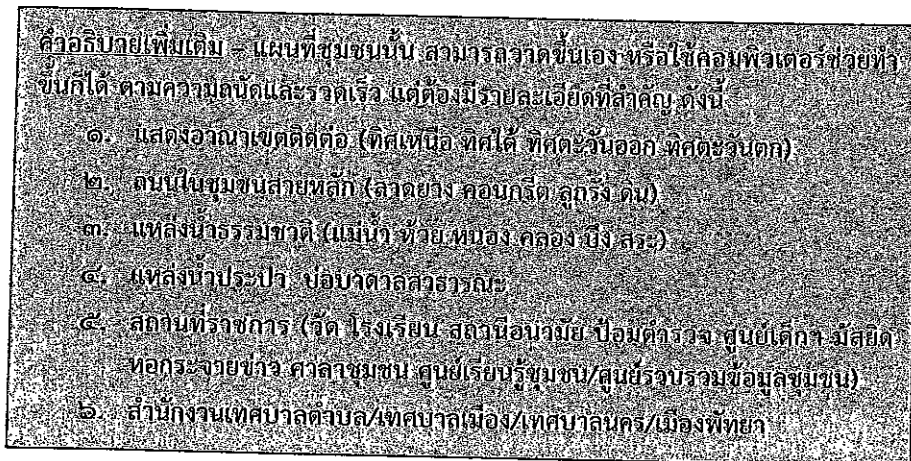 คำอธิบายเพิ่มเติม – แผนที่ชุมชนนั้น สามารถวาดขึ้นเอง หรือใช้คอมพิวเตอร์ช่วยทำ
ขึ้นก็ได้ ตามความถนัดและรวดเร็ว แต่ต้องมีรายละเอียดที่สำคัญ ดังนี้
๑. แสดงอาณาเขตติดต่อ (ทิศเหนือ ทิศใต้ ทิศตะวันออก ทิศตะวันตก)
๒. ถนนในชุมชนสายหลัก (ลาดยาง คอนกรีต ลูกรัง ดิน)
๓. แหล่งน้ำธรรมชาติ (แม่น้ำ ห้วย หนอง คลอง บึง สระ)
๔. แหล่งน้ำประปา บ่อบาดาลสาธารณะ
๕. สถานที่ราชการ (วัด โรงเรียน สถานีอนามัย ป้อมตำรวจ ศูนย์เด็กฯ มัสยิด
หอกระจายข่าว ศาลาชุมชน ศูนย์เรียนรู้ชุมชน/ศูนย์รวบรวมข้อมูลชุมชน)
๖. สำนักงานเทศบาลตำบล/เทศบาลเมือง/เทศบาลนคร/เมืองพัทยา